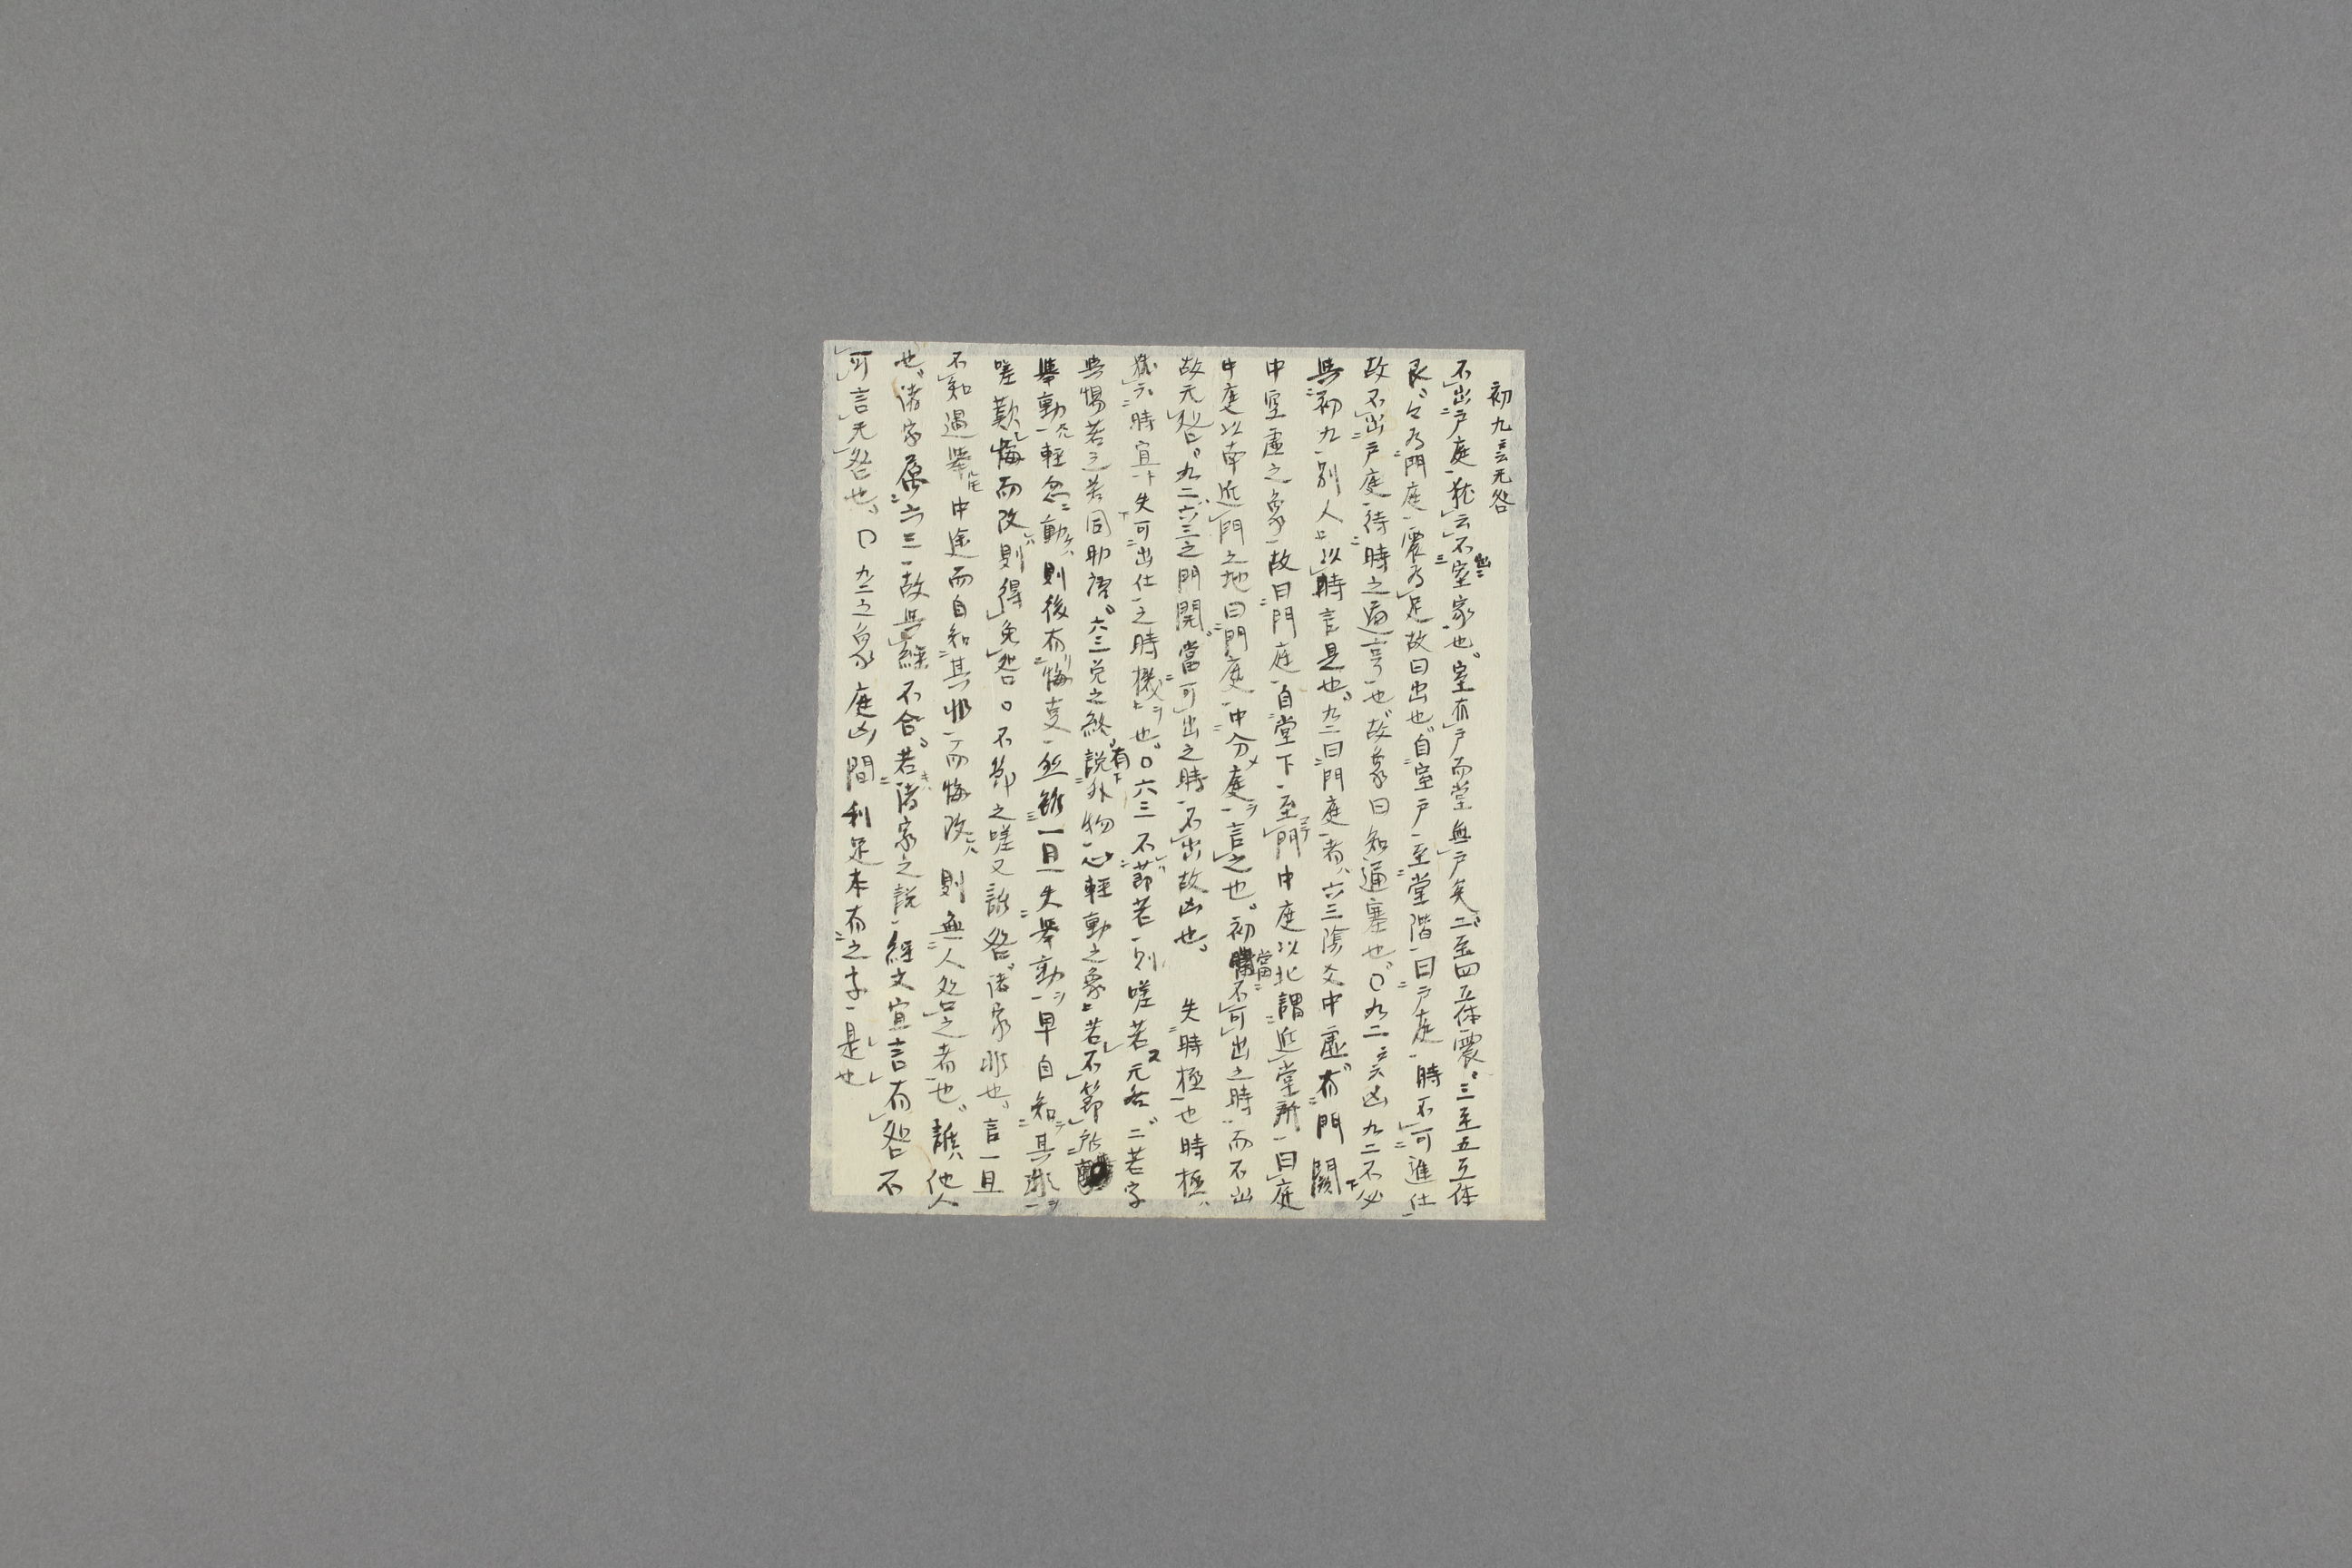 初九云云无咎
不出戸庭猶云不出室家也室有戸而堂無戸矣二至四互体震三至五互体
艮々為門庭震為足故曰出也自室戸至堂階曰戸庭時不可進仕
故不出戸庭待時之通亨也故象曰知通塞也○九二云云凶九二不必
與初九別人以時言是也九二曰門庭者六三陰爻中虚有門闕
中空虚之象故曰門庭自堂下至門中庭以北謂近堂所曰庭
中庭以南近門之地曰門庭中分庭言之也初當不可出之時而不出
故无咎九二六三之門開當可出之時不出故凶也 失時極也時極
猶云時宜失可出仕之時機也○六三不節若則嗟若无咎二若字
與惕若之若同助語六三兌之終有説外物心輕動之象若不節
舉動輕忽動則後有悔吝雖一旦失舉動早自知其非
嗟歎悔而改則得免咎○不節之嗟又誰咎諸家非也言一旦
不知過舉中途而自知其非而悔改則無人咎之者也誰他人
也諸家属六三故與經不合若諸家之説經文宜言有咎不
可言无咎也○九二之象庭凶間利足本有之字是也